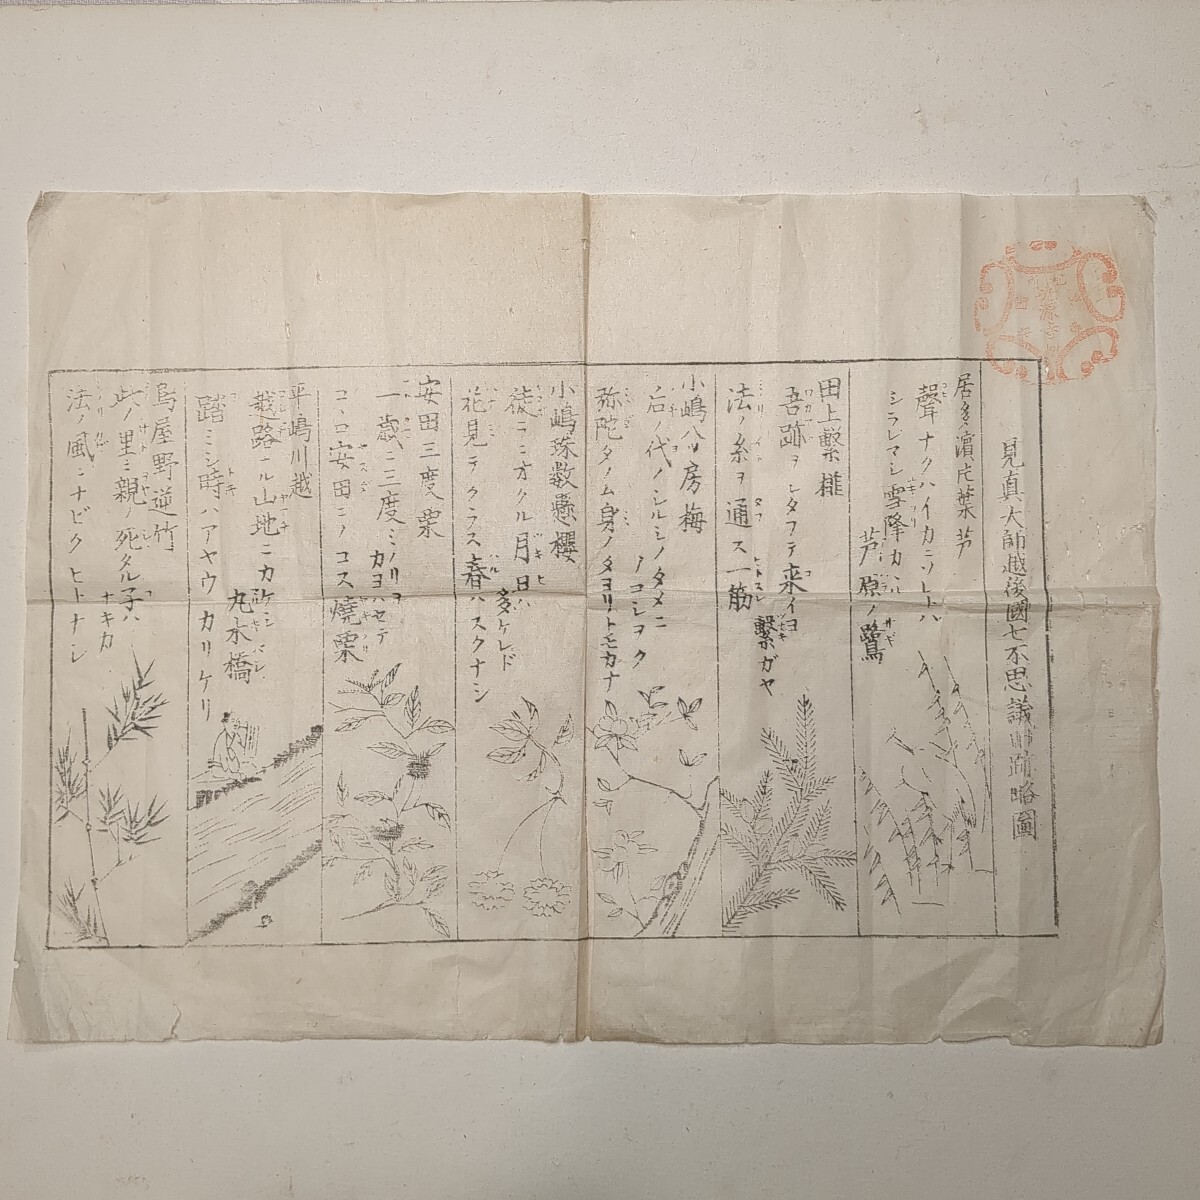 見真大師越後國七不思議旧跡略圖
居多濱片葉芦
聲ナクハイカニソレトハ
シラレマシ雪降カヽル
芦原ノ鷺
田上繫榧
吾跡ヲシタフテ来イヨ
法ノ糸ヲ通ス一筋
繫ガヤ
小嶋八ツ房梅
后ノ代ノシルシノタメニ
ノコシヲク
弥陀タノム身ノタヨリトモカナ
小嶋珠数懸櫻
徒ニオクル月日ハ
多ケレド
花見テクラス春ハスクナシ
安田三度栗
一歳ニ三度ミノリヲ
カヨハセテ
コヽロ安田ニノコス燒栗
平嶋川越
越路ニル山地ニカケシ
丸木橋
踏ミシ時ハアヤウカリケリ
鳥屋野逆竹
此ノ里ニ親ノ死タル子ハ
ナキカ
法ノ風ニナビクヒトナシ